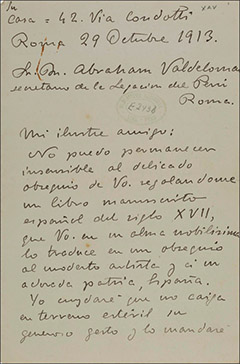 Su
casa = 42. Via Condotti
Roma 29 Octubre 1913.
Sr. Dn. Abraham Valdelomar
secretario de la Legacion del Perú
Roma.
E2438
Mi ilustre amigo:
No puedo permanecer
insensible al delicado
obsequio de Vd. regalandome
un libro manuscrito
español del siglo XVII,
que Vd. en un alma nobilisima
lo traduce en un obsequio
al modesto artista y a mi
adorada patria, España.
Yo cuydaré que no caiga
en terreno estéril su
generoso gesto y lo mandaré